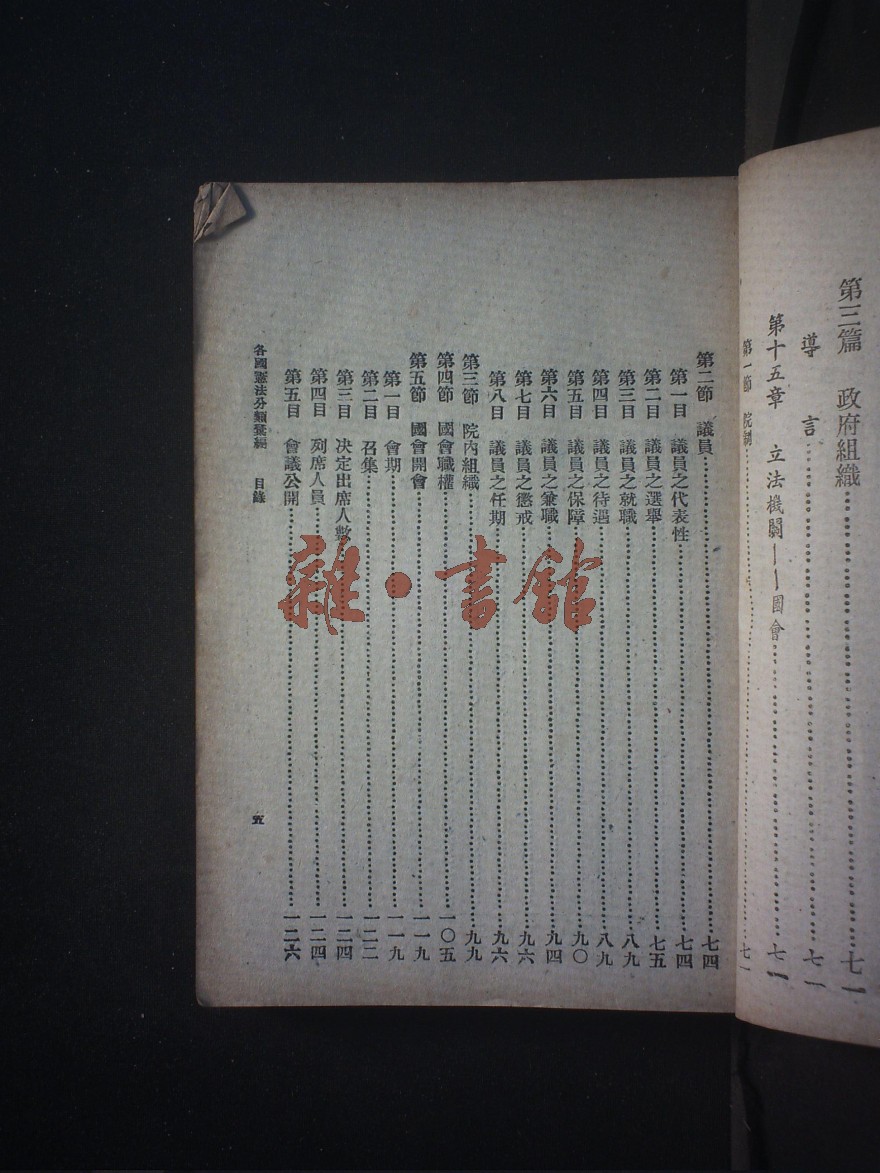 第三篇 政府組織……七一
導言……七一
第十五章 立法機關——國會……七一
第一節 院制……七一
第二節 議員……七四
第一目 議員之代表性……七四
第二目 議員之選舉……七五
第三目 議員之就職……八九
第四目 議員之待遇……八九
第五目 議員之保障……九〇
第六目 議員之兼職……九四
第七目 議員之懲戒……九六
第八目 議員之任期……九六
第三節 院內組織……九九
第四節 國會職權……一〇五
第五節 國會開會……一一九
第一目 會期……一一九
第二目 召集……一二二
第三目 決定出席人數……一二四
第四目 列席人員……一二四
第五目 會議公開……一二六
各國憲法分類彙編 目錄
五
雜·書館